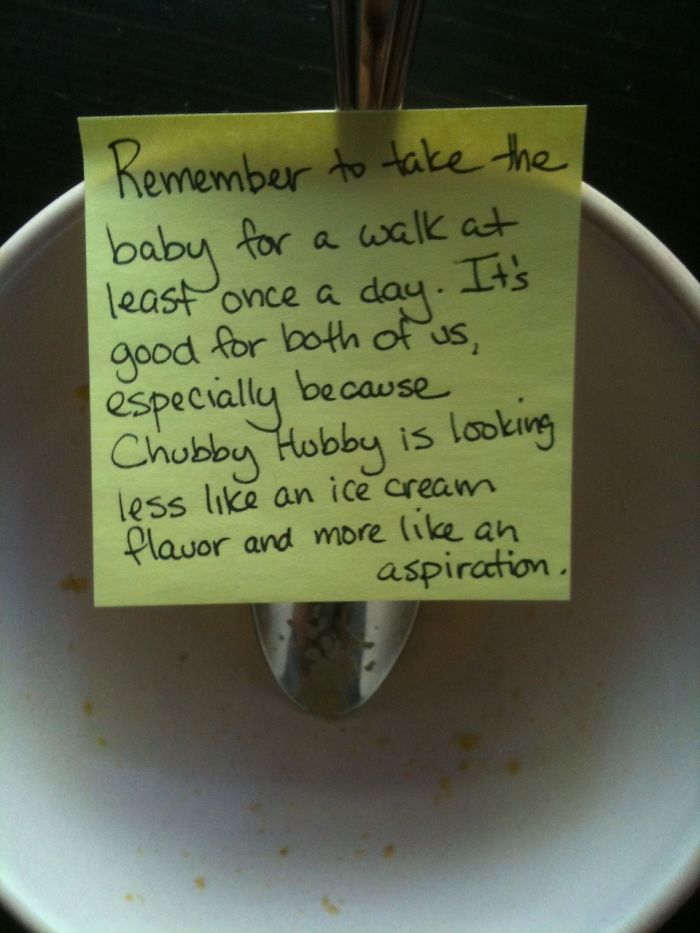 Remember to take the
baby for a walk at
least once a day. It's
good for both of us,
especially because
Chubby Hubby is looking
less like an ice cream
flavor and more like an
aspiration.